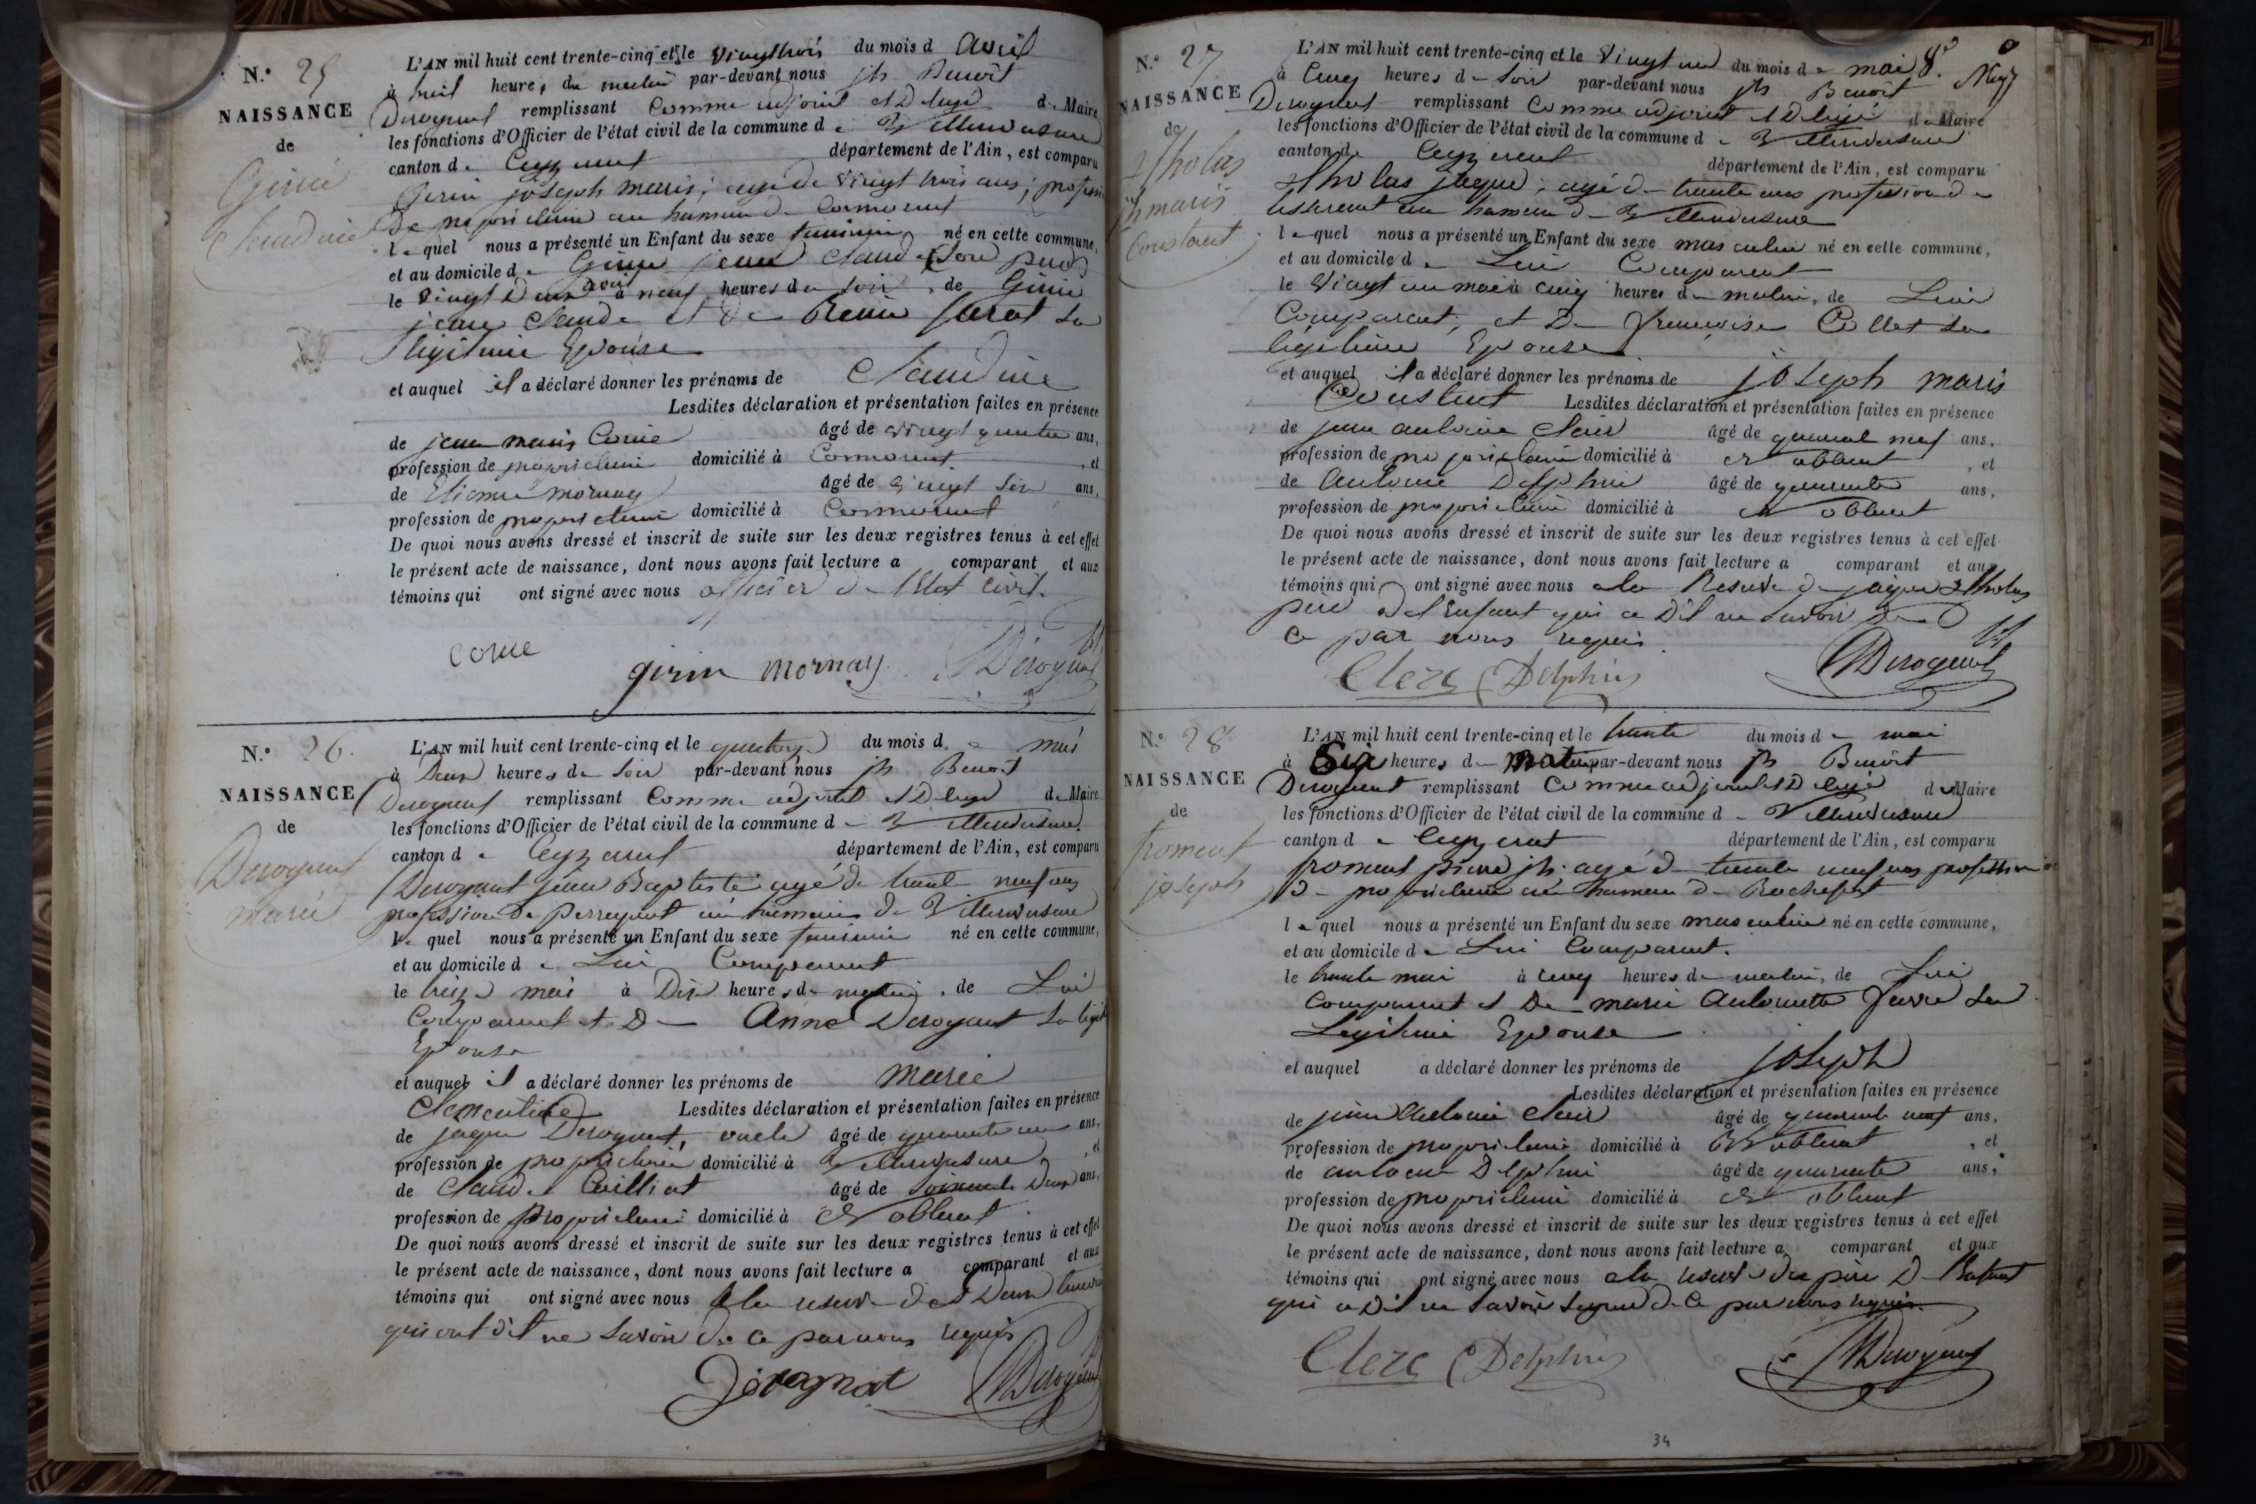 N.° 25
NAISSANCE
de
Girin
Claudine
L'AN mil huit cent trente-cinq et le vingt trois du mois d avril
à huit heures du matin par-devant nous jh Benoit
Derognat remplissant comme adjoint et Delegé de Maire
les fonctions d'Officier de l'état civil de la commune de Villereversure
canton de Ceyzeriat département de l'Ain, est comparu
Girin joseph marie, agé de vingt trois ans; profession
de proprietaire au hameau de Cormorent
lequel nous a présenté un Enfant du sexe feminin né en cette commune,
et au domicile de Girin jean Claude son pere
le vingt Deux avril à neuf heures du soir, de Girin
jean Claude et de Reine Sarat sa
légitime Epouse
et auquel il a déclaré donner les prénoms de Claudine
Lesdites déclaration et présentation faites en présence
de jean marie Corne âgé de vingt quatre ans,
profession de proprietaire domicilié à Cormorent, et
de Etienne mornay âgé de vingt six ans,
profession de proprietaire domicilié à Cormorent
De quoi nous avons dressé et inscrit de suite sur les deux registres tenus à cet effet
le présent acte de naissance, dont nous avons fait lecture a comparant et aux
témoins qui ont signé avec nous officier de l'Etat civil.
corne
girin mornay Derognat
N.° 26.
NAISSANCE
de
Derognat
marie
L'AN mil huit cent trente-cinq et le quatorze du mois de mai
à Deux heures de soir par-devant nous jh Benoit
Derognat remplissant comme adjoint et Delegé de Maire
les fonctions d'Officier de l'état civil de la commune de Villereversure
canton de Ceyzeriat département de l'Ain, est comparu
Derognat jean Baptiste agé de trente neuf ans
profession de au hameau de Villereversure
lequel nous a présenté un Enfant du sexe feminin né en cette commune,
et au domicile de Lui Comparant
le treize mai à Dix heures du matin, de Lui
Comparant et De Anne Derognat sa légitime
Epouse
et auquel il a déclaré donner les prénoms de marie
Clementine Lesdites déclaration et présentation faites en présence
de jaque Derognat, oncle âgé de quarante un ans,
profession de proprietaire domicilié à Villereversure, et
de Claude Cailliat âgé de soixante Deux ans,
profession de proprietaire domicilié à
De quoi nous avons dressé et inscrit de suite sur les deux registres tenus à cet effet
le présent acte de naissance, dont nous avons fait lecture a comparant et aux
témoins qui ont signé avec nous a la reserve des Deux temoins
qui ont dit ne savoir de ce par nous requis
Dérognat Derognat
N.° 27
NAISSANCE
de
Tholas
jh marie
Constant
L'AN mil huit cent trente-cinq et le vingt un du mois de mai
à cinq heures de soir par-devant nous jh Benoit
Derognat remplissant comme adjoint et Delegé de Maire
les fonctions d'Officier de l'état civil de la commune de Villereversure
canton de Ceyzeriat département de l'Ain, est comparu
Tholas jaque, agé de trente ans profession de
tisserand au hameau de Villereversure
lequel nous a présenté un Enfant du sexe masculin né en cette commune,
et au domicile de Lui Comparant
le vingt un mai à cinq heures du matin, de Lui
Comparant, et De françoise Collet sa
légitime Epouse
et auquel il a déclaré donner les prénoms de joseph marie
Constant Lesdites déclaration et présentation faites en présence
de jean antoine Clerc âgé de quarante neuf ans,
profession de proprietaire domicilié à, et
de Antoine Delphin âgé de quarante ans,
profession de proprietaire domicilié à
De quoi nous avons dressé et inscrit de suite sur les deux registres tenus à cet effet
le présent acte de naissance, dont nous avons fait lecture a comparant et aux
témoins qui ont signé avec nous a la Reserve de jaque Tholas
pere de l'Enfant qui a Dit ne savoir De
ce par nous requis
Clerc Delphin Derognat
N.° 28
NAISSANCE
de
froment
joseph
L'AN mil huit cent trente-cinq et le trente du mois de mai
à Six heures de matin par-devant nous jh Benoit
Derognat remplissant comme adjoint et Delegé de Maire
les fonctions d'Officier de l'état civil de la commune de Villereversure
canton de Ceyzeriat département de l'Ain, est comparu
froment pierre jh agé de trente neuf ans profession
de proprietaire au hameau de Rochefort
lequel nous a présenté un Enfant du sexe masculin né en cette commune,
et au domicile de Lui Comparant.
le trente mai à cinq heures du matin, de Lui
Comparant et De marie Antoinette favre sa
Légitime Epouse
et auquel a déclaré donner les prénoms de joseph
Lesdites déclaration et présentation faites en présence
de jean Antoine Clerc âgé de quarante neuf ans,
profession de proprietaire domicilié à, et
de antoine Delphin âgé de quarante ans,
profession de proprietaire domicilié à
De quoi nous avons dressé et inscrit de suite sur les deux registres tenus à cet effet
le présent acte de naissance, dont nous avons fait lecture a comparant et aux
témoins qui ont signé avec nous a la reserve du père De l'enfant
qui a Dit ne savoir signer de ce par nous requis.
Clerc Delphin Derognat
34